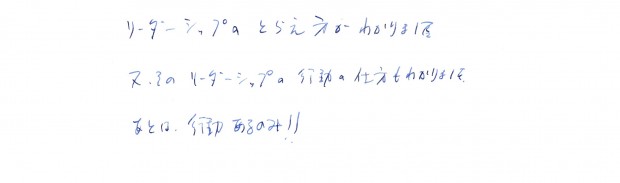 リーダーシップの とらえ方が わかりました
又、そのリーダーシップの 行動の仕方もわかりました
あとは、行動あるのみ!!